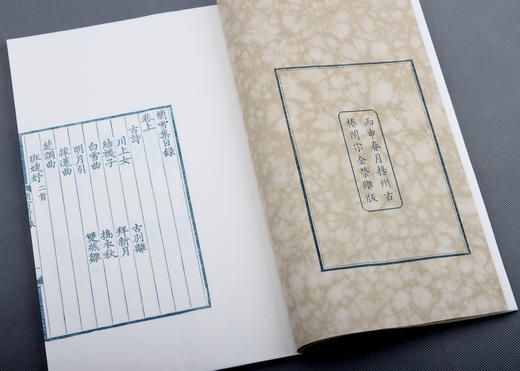 丙申春月揚州古
椿閣宗金榮雕版
蘭雪集目錄
卷上
古詩 古別離
川上女 拜新月
結襪子 搗衣秋
白雪曲 雙燕離
明月引
採蓮曲
楚調曲
班婕妤二首